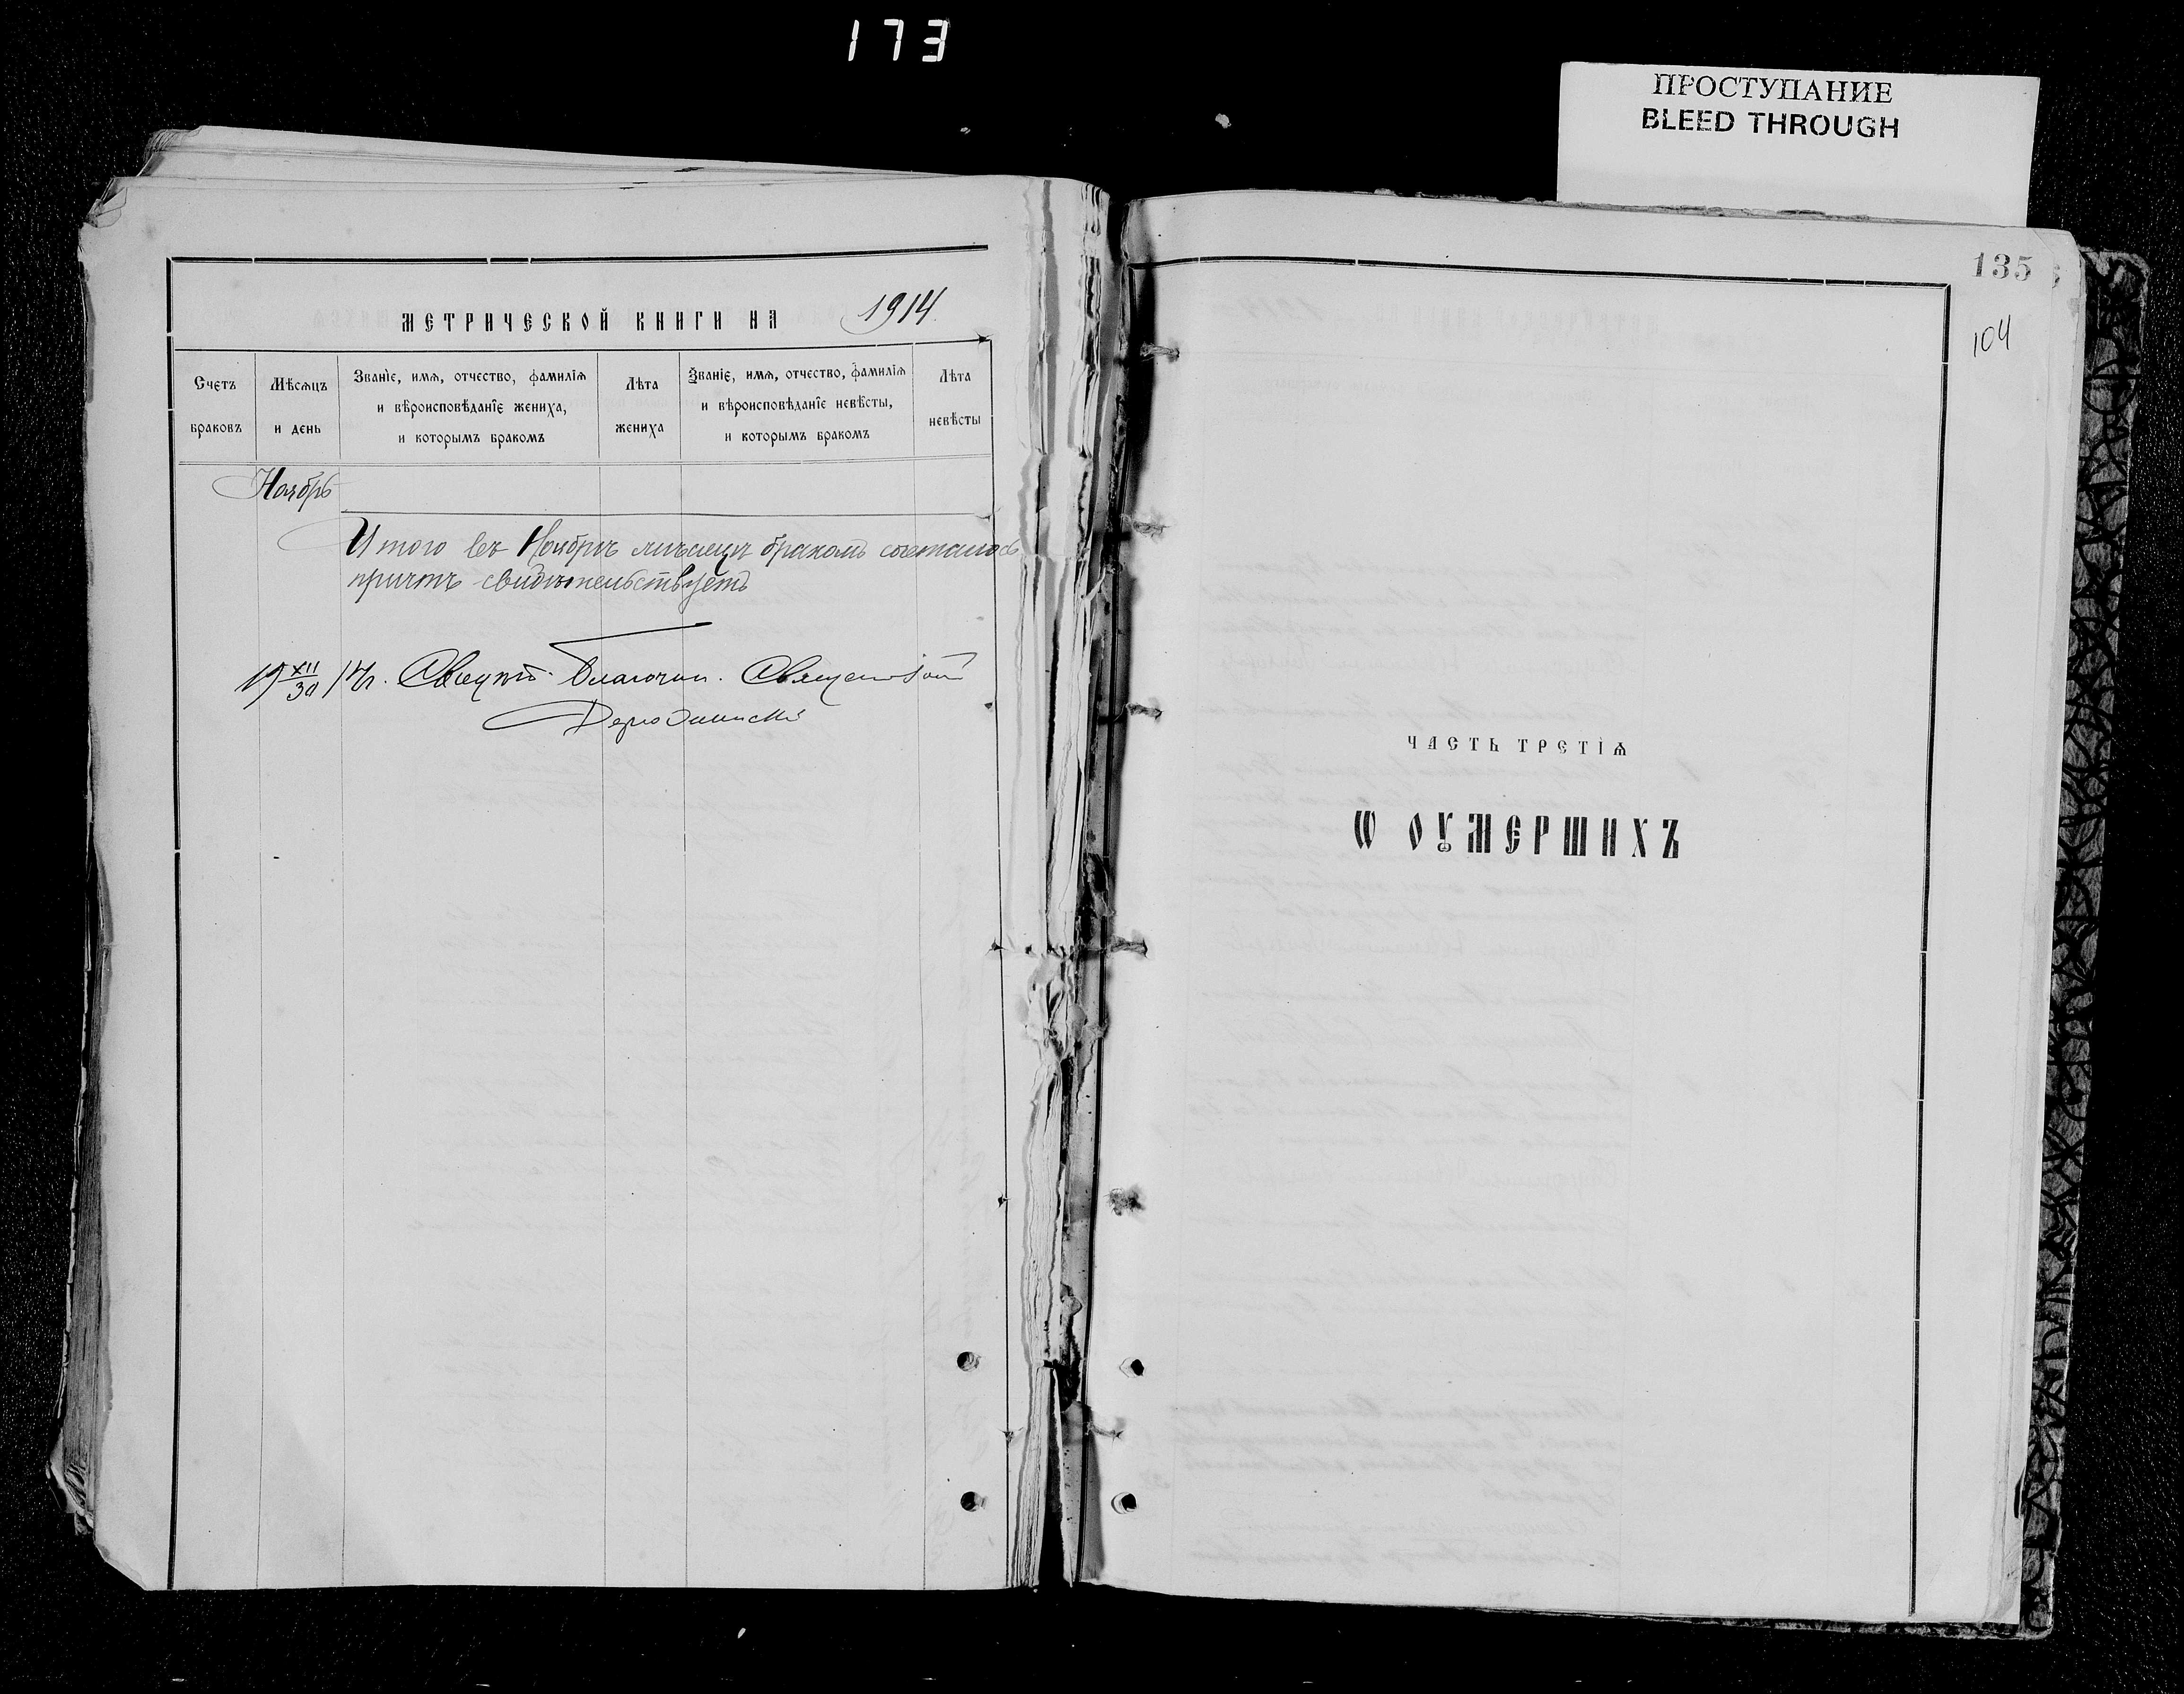 173
ПРОСТУПАНИЕ
BLEED THROUGH
МЕТРИЧЕСКОЙ КНИГИ НА 1914
Счетъ браковъ
Мѣсѧцъ и день
Званїе, имѧ, отчество, фамилїѧ
и вѣроисповѣданїе жениха,
и которымъ бракомъ
Лѣта жениха
Званїе, имѧ, отчество, фамилїѧ
и вѣроисповѣданїе невѣсты,
и которымъ бракомъ
Лѣта невѣсты
Ноябрь
Итого въ Ноябрѣ мѣсяцѣ бракомъ
причтъ свидѣтельствуетъ
19 XII/30 14 г. Благочин. Священ
135
104
ЧАСТЬ ТРЕТЇѦ
Ѡ ОУМЕРШИХЪ